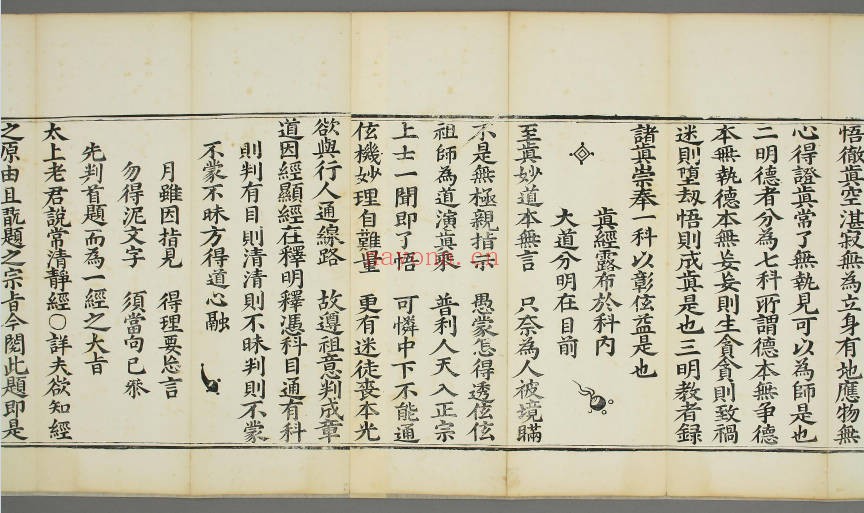 悟徹眞空湛寂無為立身有地應物無
心得證眞常了無執見可以為師是也
二明德者分為七科所謂德本無爭德
本無執德本無妄妄則生貪貪則致禍
迷則墮刼悟則成眞是也三明教者録
諸眞崇奉一科以彰弦益是也
眞經露布於科內
大道分明在目前
至眞妙道本無言　只奈為人被境瞞
不是無極親指宗　愚蒙怎得透弦弦
祖師為道演眞乘　普利人天入正宗
上士一聞即了悟　可憐中下不能通
弦機妙理自難量　更有迷徒喪本光
欲與行人通線路　故遵祖意判成章
道因經顯經在釋明釋憑科目通有科
則判有目則清清則不昧判則不蒙
不蒙不昧方得道心融
月雖因指見　得理要忘言
勿得泥文字　須當向已叅
先判首題而為一經之大旨
太上老君說常清靜經〇詳夫欲知經
之原由且翫題之宗旨今閱此題即是
nayona.cn